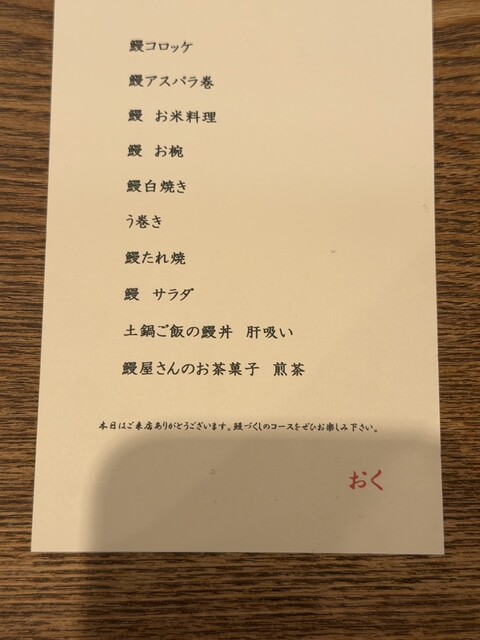 鰻コロッケ
鰻アスパラ巻
鰻 お米料理
鰻 お椀
鰻白焼き
う巻き
鰻たれ焼
鰻 サラダ
土鍋ご飯の鰻丼 肝吸い
鰻屋さんのお茶菓子 煎茶
本日はご来店ありがとうございます。鰻づくしのコースをぜひお楽しみ下さい。
おく